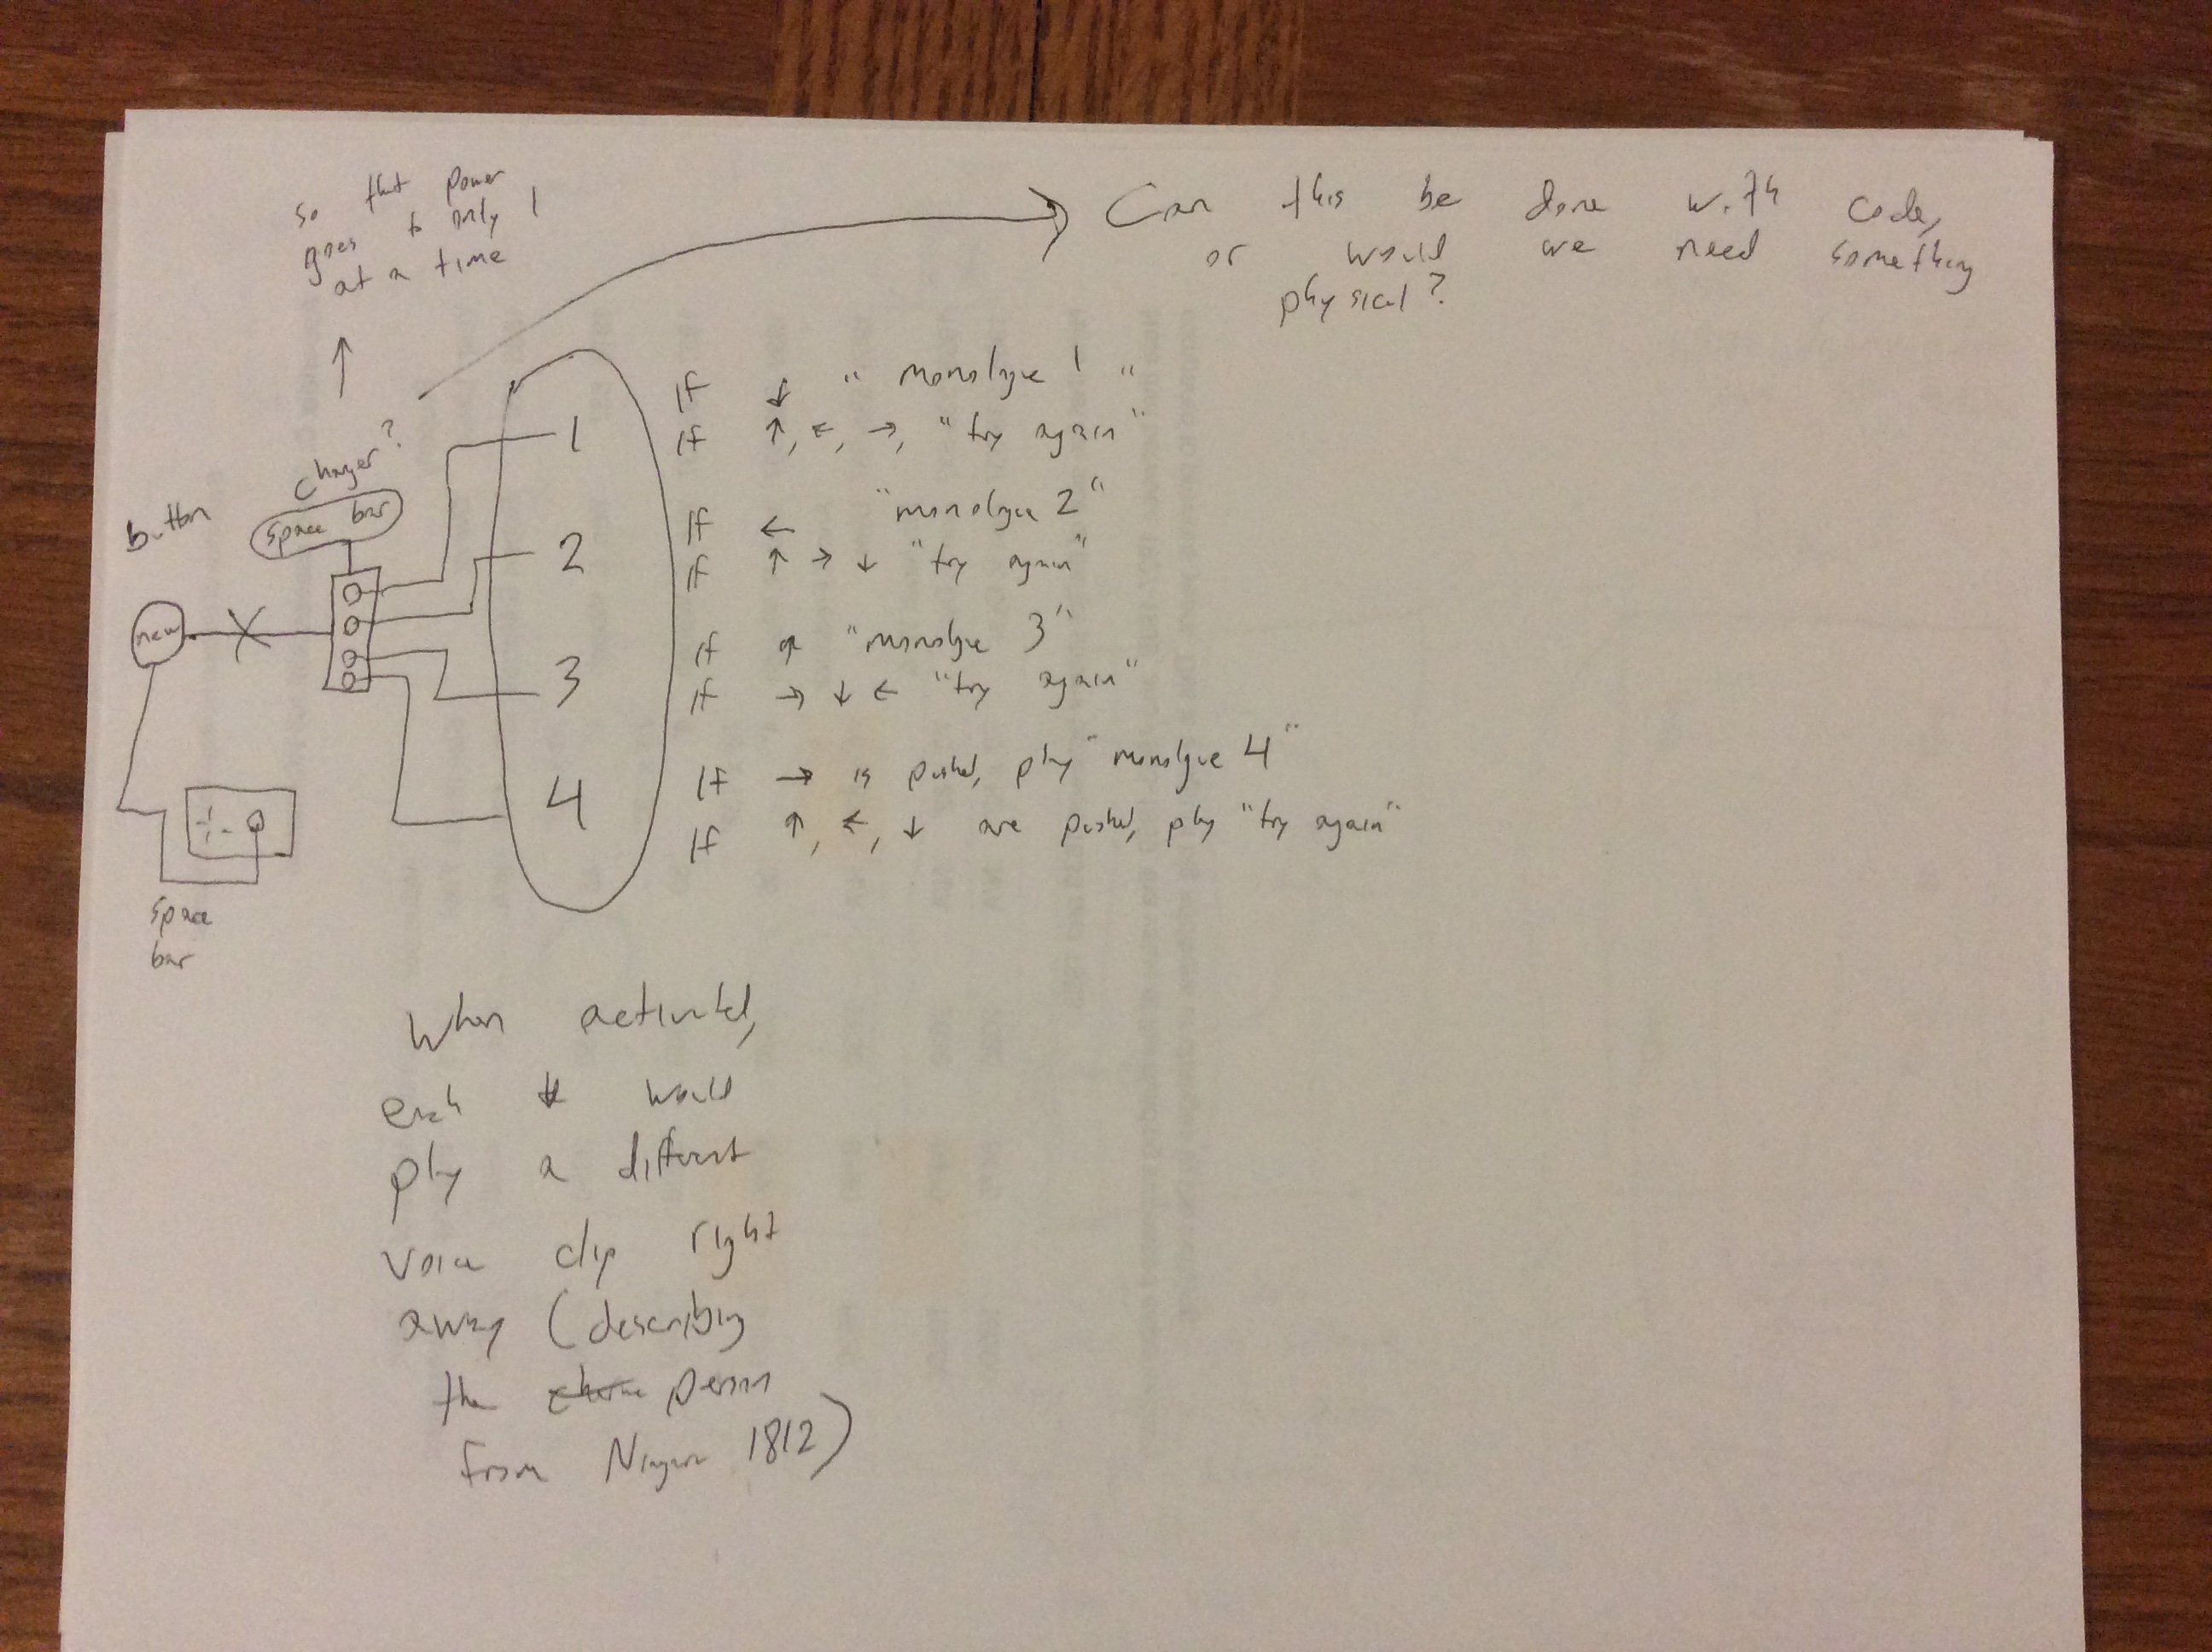 so that power
goes to only 1
at a time
↑
Can this be done with code,
or would we need something
physical?
changer?
space bar
button
new
space
bar
1
If ↓ "monologue 1"
If ↑, ←, →, "try again"
2
If ← "monologue 2"
If ↑ → ↓ "try again"
3
If ↑ "monologue 3"
If → ↓ ← "try again"
4
If → is pushed, play "monologue 4"
If ↑, ←, ↓ are pushed, play "try again"
When activated,
each # would
play a different
voice clip right
away (describing
the person
from Niagara 1812)